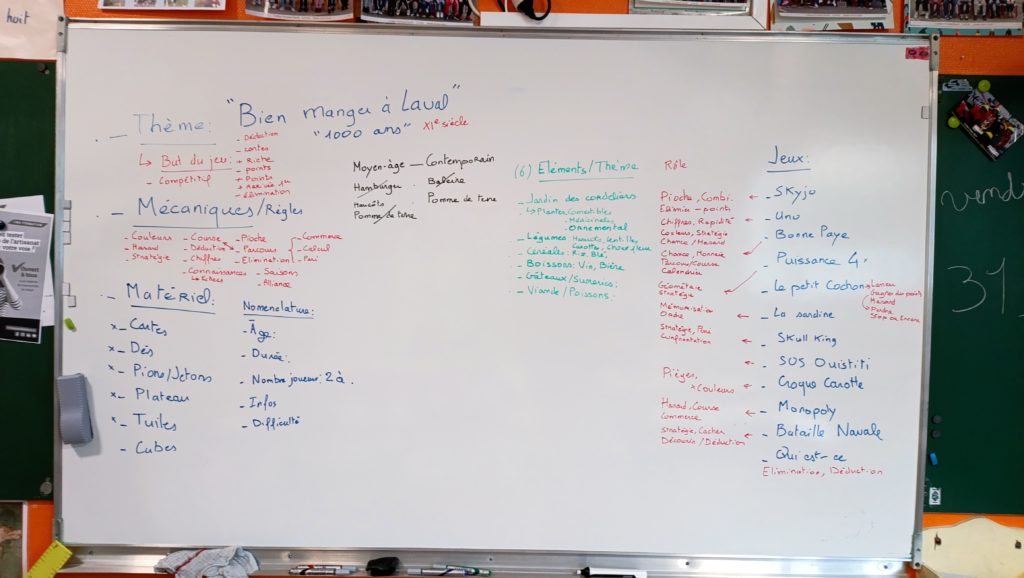 huit
"Bien manger à Laval"
_ Thème: "1000 ans" XIe siècle
↳ But du jeu:
- Compétitif
- Déduction
- Cartes
+ Riche
- points
+ Points
- Elimination
_ Mécaniques/Règles
- Couleurs
- Hasard
- Stratégie
- Course
- Déduction
- Chiffres
- Connaissances
↳ Echecs
- Pioche
- Parcours
- Elimination
- Saisons
- Alliance
- Commerce
- Calcul
- Pari
_ Matériel:
x_ Cartes
x_ Dés
x_ Pions/Jetons
x_ Plateau
x_ Tuiles
- Cubes
Nomenclature:
- Âge:
- Durée:
- Nombre joueurs: 2 à .
- Infos
- Difficulté
Moyen-âge — Contemporain
Hamburger . Baleine
Haricots . Pomme de terre
Pomme de terre
(6) Eléments/Thème
- Jardin des cordeliers
↳ Plantes, Comestibles
. Médicinales
. Ornemental
- Légumes: Haricots, lentilles,
Carotte, Choux fleur
- Céréales: Riz, Blé.
- Boissons: Vin, Bière
- Gâteaux/Sucreries:
- Viande/Poissons:
Rôle
Pioche, Combi.
Elimin - points
Chiffres, Rapidité
Couleurs, Stratégie
Chance/Hasard
Chance, Monnaie
Parcours/Course
Calendrier
Géométrie
Stratégie
Mémorisation
Ordre
Stratégie, Pari
Confrontation
Pièges,
x Couleurs
Hasard, Course
Commerce
Stratégie, Cacher
Découvrir/Déduction
Jeux:
- Skyjo
- Uno
- Bonne Paye
- Puissance 4
- Le petit Cochon
Lancer
Gagner des points
Hasard
Perdre
Stop ou Encore
- La sardine
- Skull King
- SOS Ouistiti
- Croque Carotte
- Monopoly
- Bataille Navale
- Qui est-ce
Elimination, Déduction
vendi
31